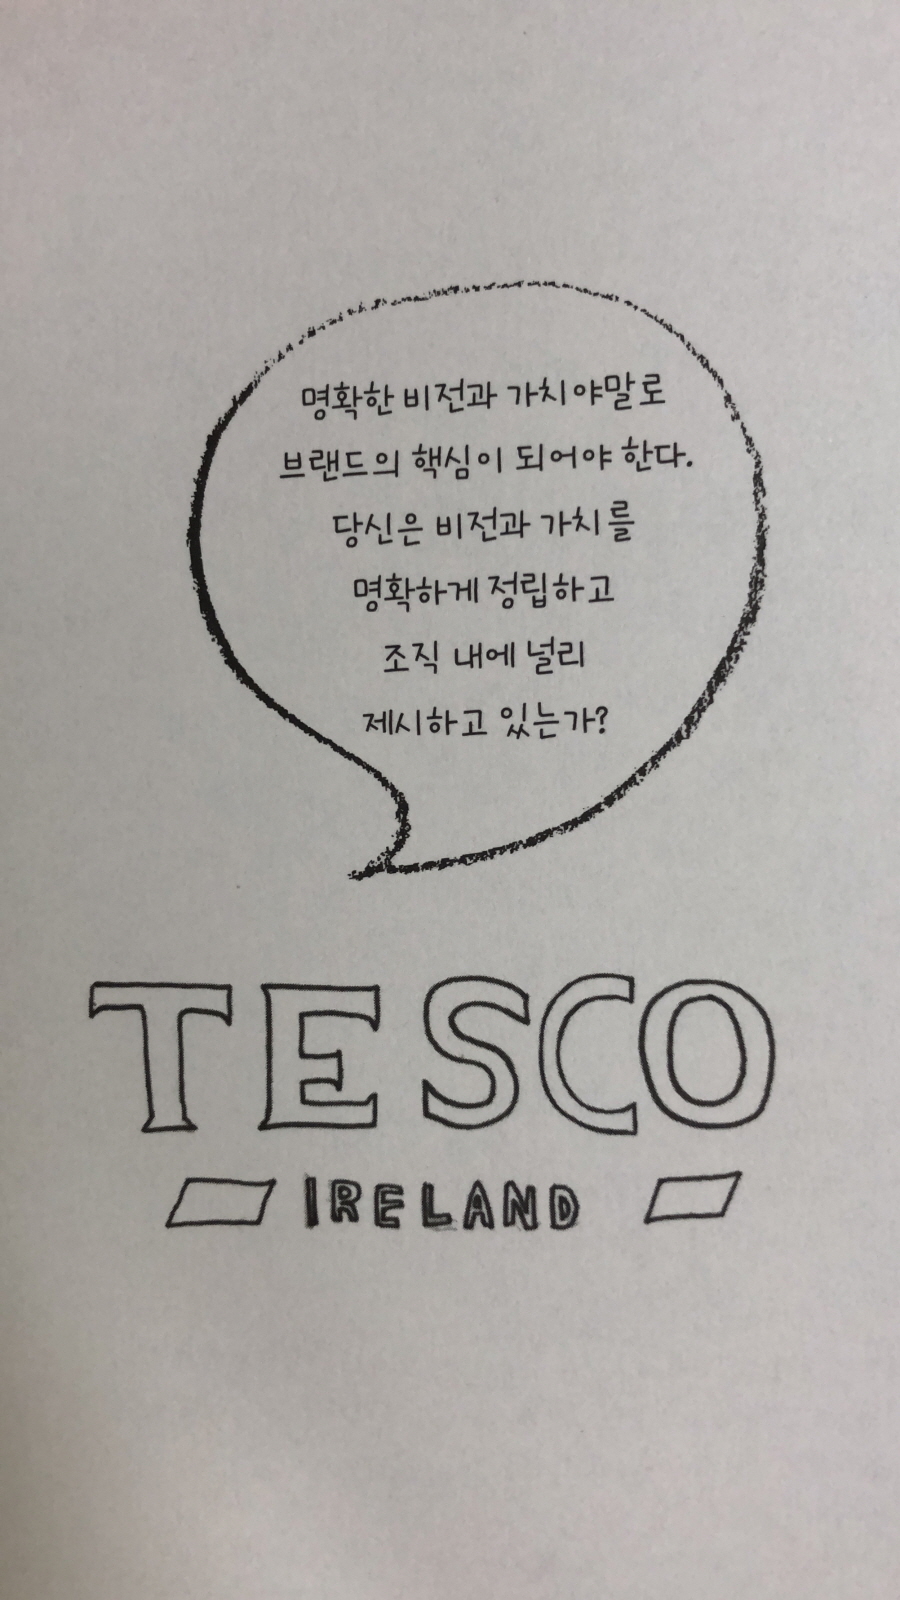 명확한 비전과 가치야말로
브랜드의 핵심이 되어야 한다.
당신은 비전과 가치를
명확하게 정립하고
조직 내에 널리
제시하고 있는가?
TESCO
IRELAND